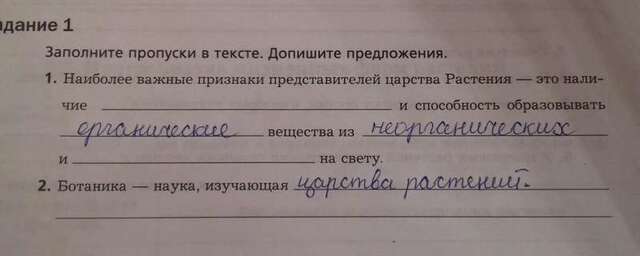 адание 1
Заполните пропуски в тексте. Допишите предложения.
1. Наиболее важные признаки представителей царства Растения — это нали-
чие ____________ и способность образовывать
органические вещества из неорганических
и ____________ на свету.
2. Ботаника — наука, изучающая царства растений.